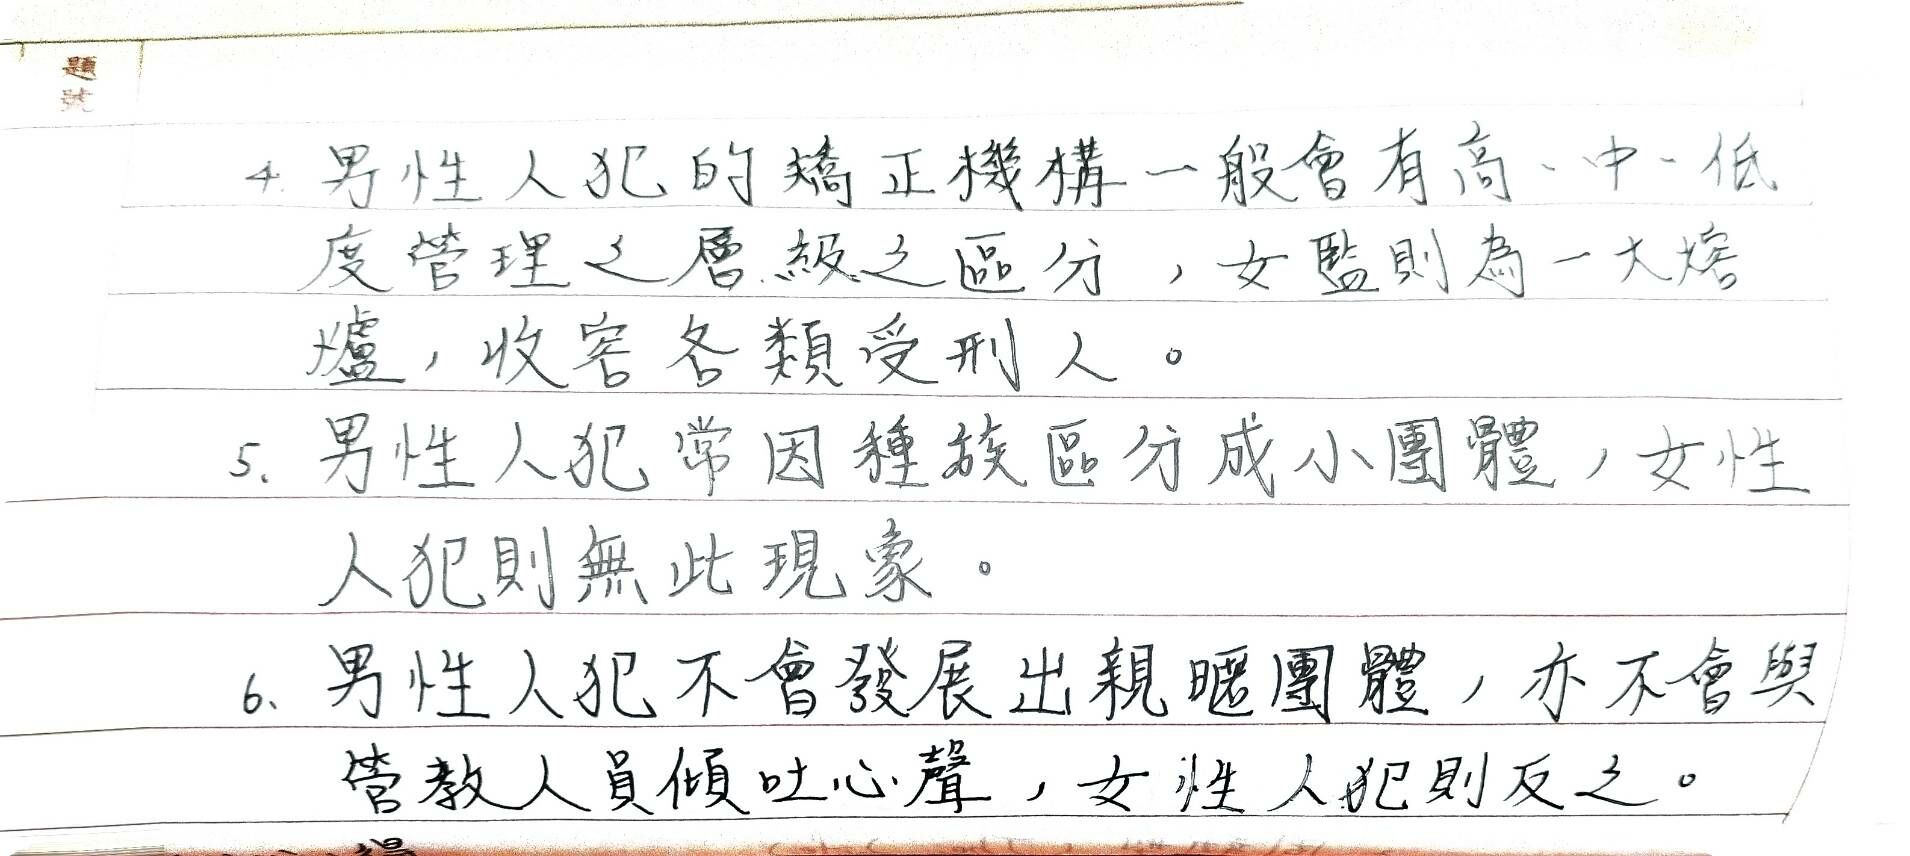 題號
4. 男性人犯的矯正機構一般會有高、中、低
度管理之層級之區分，女監則為一大熔
爐，收容各類受刑人。
5. 男性人犯常因種族區分成小團體，女性
人犯則無此現象。
6. 男性人犯不會發展出親暱團體，亦不會與
管教人員傾吐心聲，女性人犯則反之。